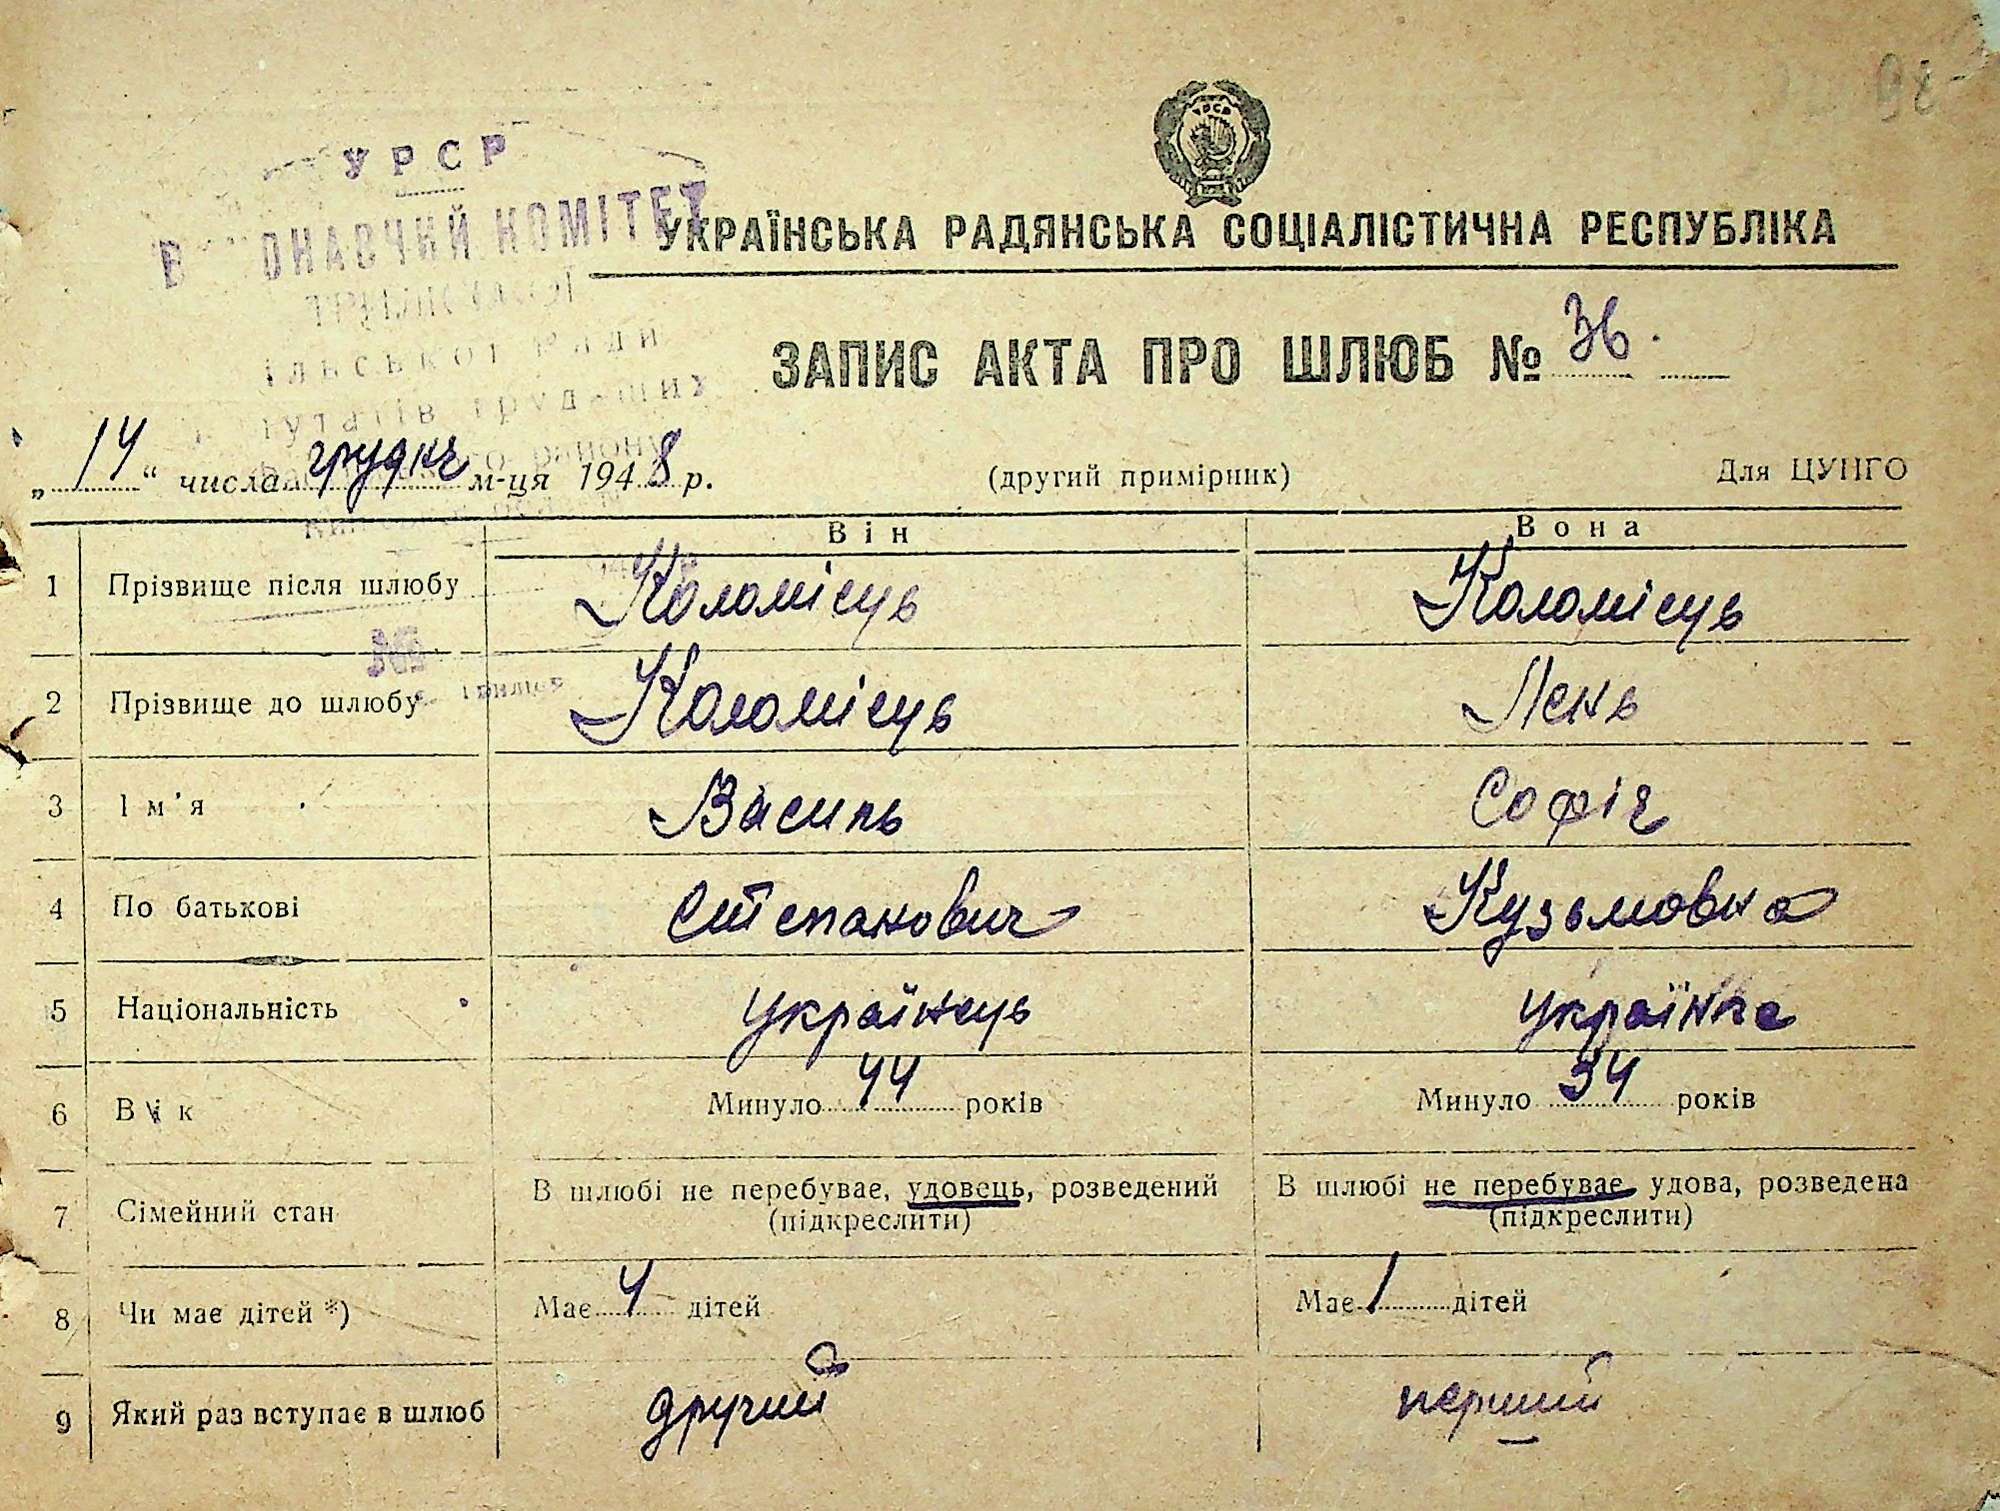 98
УРСР
УРСР
КОМІТЕТ
УКРАЇНСЬКА РАДЯНСЬКА СОЦІАЛІСТИЧНА РЕСПУБЛІКА
ЗАПИС АКТА ПРО ШЛЮБ № 36.
„14“ числа грудня м-ця 1948 р. (другий примірник) Для ЦУНГО
Він Вона
1 Прізвище після шлюбу Коломієць Коломієць
2 Прізвище до шлюбу Коломієць Лень
3 Ім'я Василь Софія
4 По батькові Степанович Кузьмовна
5 Національність Українець Українка
6 Вік Минуло 44 років Минуло 34 років
7 Сімейний стан В шлюбі не перебуває, удовець, розведений В шлюбі не перебуває удова, розведена
(підкреслити) (підкреслити)
8 Чи має дітей *) Має 4 дітей Має 1 дітей
9 Який раз вступає в шлюб другий перший